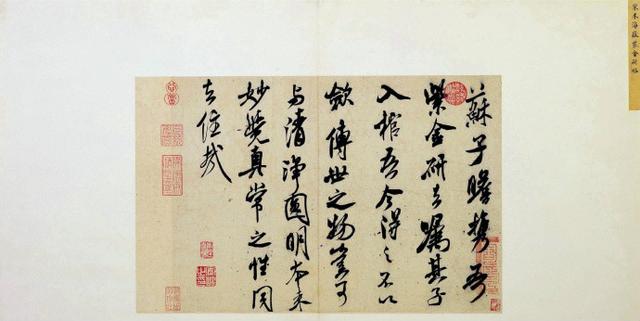 蘇子瞻携吾
紫金研去嘱其子
入棺吾今得之不以
斂傳世之物豈可
与清淨圓明本來
妙覺真常之性同
去住哉